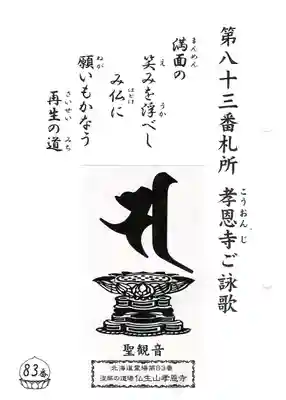 第八十三番札所 孝恩寺ご詠歌
こうおんじ
満面の
まんめん
笑みを浮べし
え うか
み仏に
ほとけ
願いもかなう
ねが
再生の道
さいせい みち
サ
聖観音
北海道霊場第83番
仏生山孝恩寺
83番